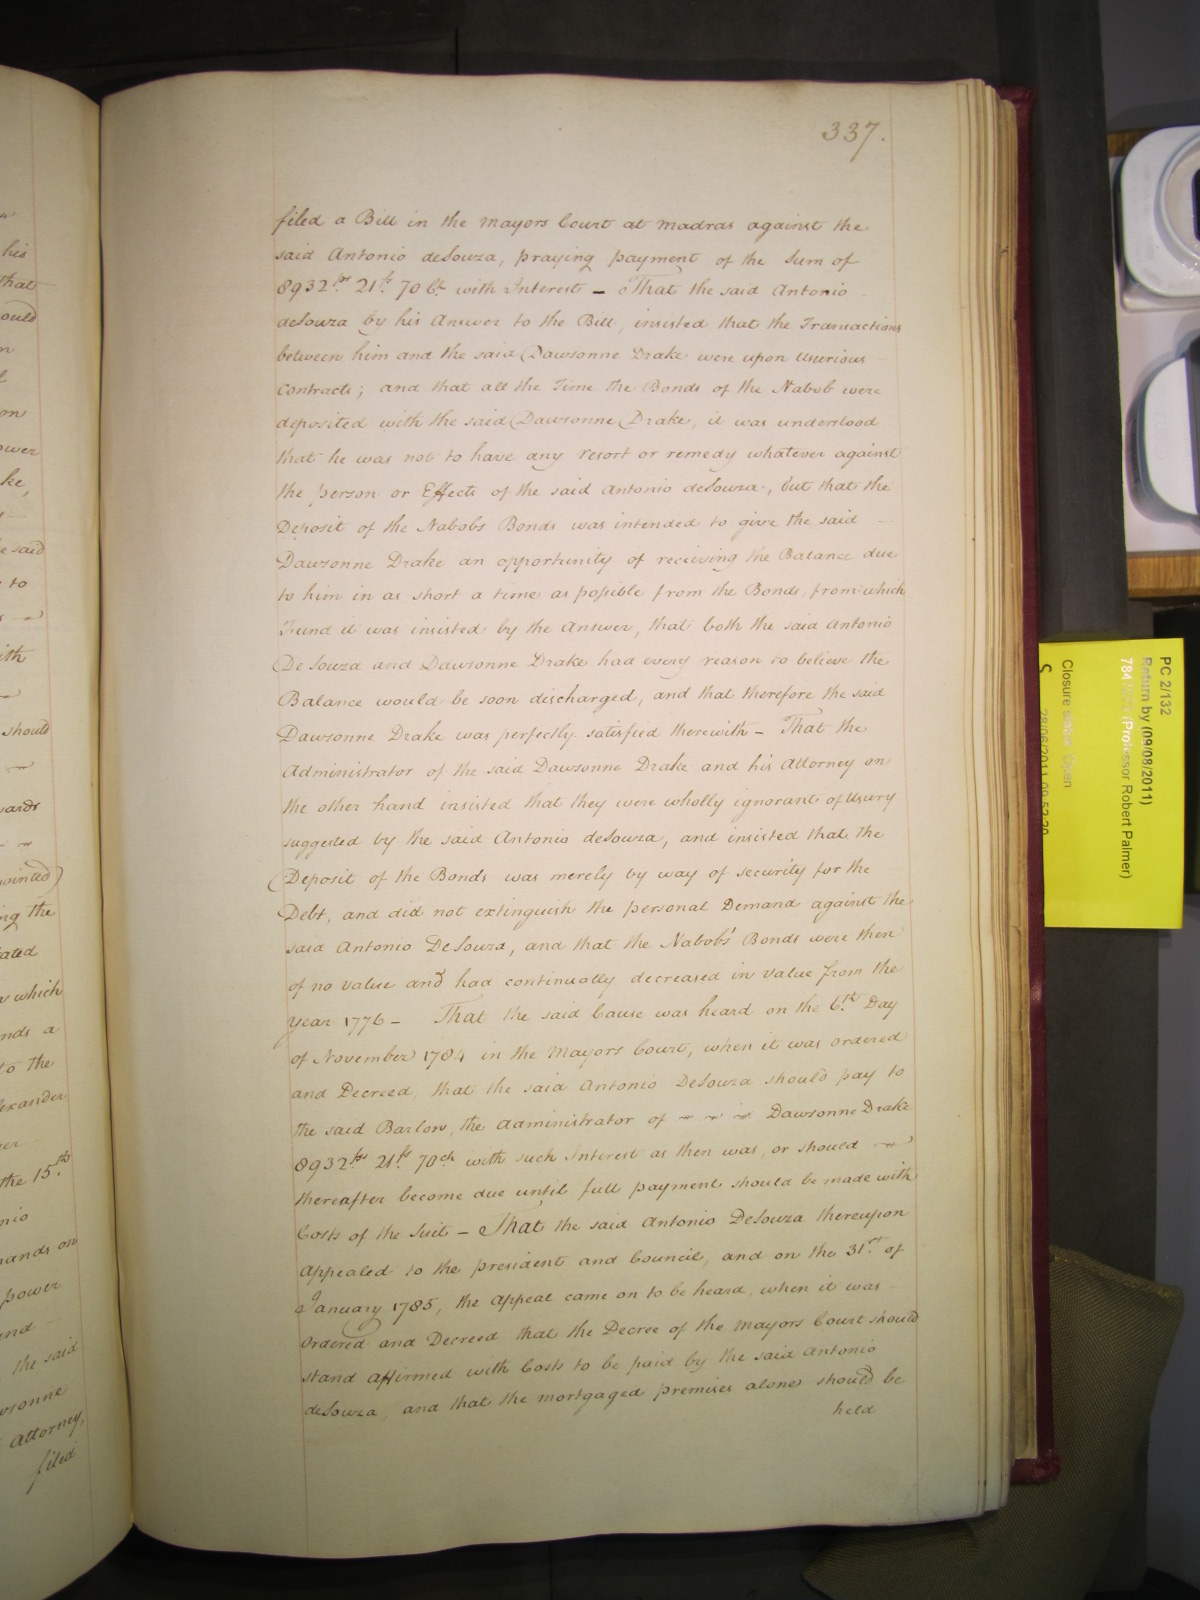 337.
filed a Bill in the Mayors Court at Madras against the
said Antonio deSouza, praying payment of the Sum of
8932 ps 21 fs 70 Ch with Interest – That the said Antonio
deSouza by his Answer to the Bill, insisted that the Transactions
between him and the said Dawsonne Drake were upon usurious
Contracts; and that all the Time the Bonds of the Nabob were
deposited with the said Dawsonne Drake, it was understood
that he was not to have any resort or remedy whatever against
the person or Effects of the said Antonio deSouza, but that the
Deposit of the Nabobs Bonds was intended to give the said
Dawsonne Drake an opportunity of receiving the Balance due
to him in as short a time as possible from the Bonds, from which
Fund it was insisted by the Answer, that both the said Antonio
De Souza and Dawsonne Drake had every reason to believe the
Balance would be soon discharged, and that therefore the said
Dawsonne Drake was perfectly satisfied therewith – That the
Administrator of the said Dawsonne Drake and his Attorney on
the other hand insisted that they were wholly ignorant of Usury
suggested by the said Antonio deSouza, and insisted that the
Deposit of the Bonds was merely by way of security for the
Debt, and did not extinguish the personal Demand against the
said Antonio DeSouza, and that the Nabob's Bonds were then
of no value and had continually decreased in value from the
Year 1776 – That the said Cause was heard on the 6th Day
of November 1784 in the Mayors Court, when it was ordered
and Decreed, that the said Antonio DeSouza should pay to
the said Barlow, the Administrator of Dawsonne Drake
8932 ps 21 fs 70 ch with such Interest as then was, or should
thereafter become due until full payment should be made with
Costs of the Suit – That the said Antonio DeSouza thereupon
appealed to the president and Council, and on the 31st of
January 1785, the Appeal came on to be heard, when it was
Ordered and Decreed that the Decree of the Mayors Court should
stand affirmed with Costs to be paid by the said Antonio
deSouza, and that the mortgaged premises alone should be
held
his
that
ould
on
ower
ke,
e said
to
ith
should
wards
ointed)
ng the
iated
which
nds a
to the
lexander
the 15th
nio
hands on
power
and
the said
wsonne
Attorney,
filed
PC 2/132
Return by (09/08/2011)
(Professor Robert Palmer)
Closure status Open
28/06/2011